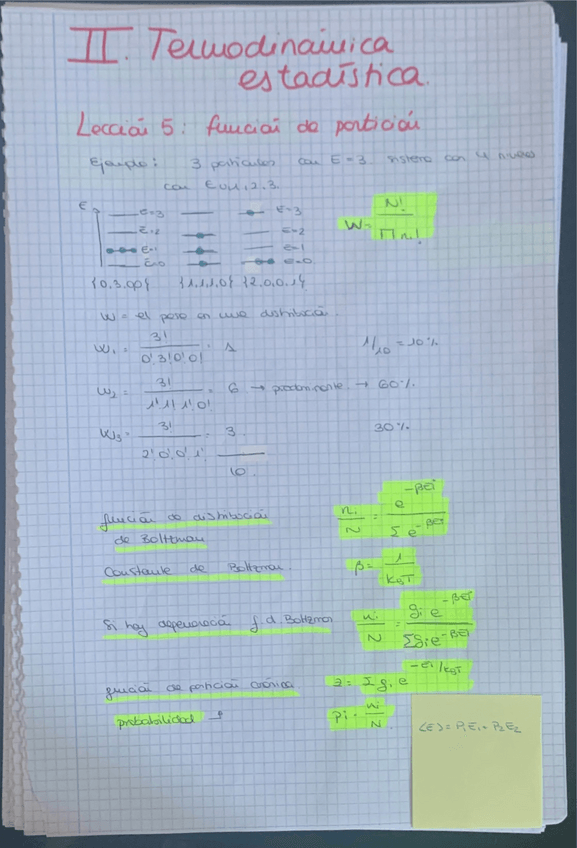 II. Termodinámica
estadística.
Lección 5: función de partición
Ejemplo: 3 partículas con E=3. sistema con 4 niveles
con E=0,1,2,3.
E
E=3
E=2
E=1
E=0
E=3
E=2
E=1
E=0
W= N! / Π ni!
{0,3,0,0} {1,1,1,0} {2,0,0,1}
W = el peso en una distribución.
W1 = 3! / 0!3!0!0! = 1 1/10 = 10%
W2 = 3! / 1!1!1!0! = 6 → predominante → 60%
W3 = 3! / 2!0!0!1! = 3 30%
10
función de distribución de Boltzman ni/N = e^-βEi / Σ e^-βEi
Constante de Boltzman β= 1/kBT
Si hay degeneració f.d. Boltzman ni/N = gi e^-βEi / Σgi e^-βEi
función de partición canónica z = Σ gi e^-Ei/kBT
probabilidad pi = ni/N
⟨E⟩= P1E1 + P2E2